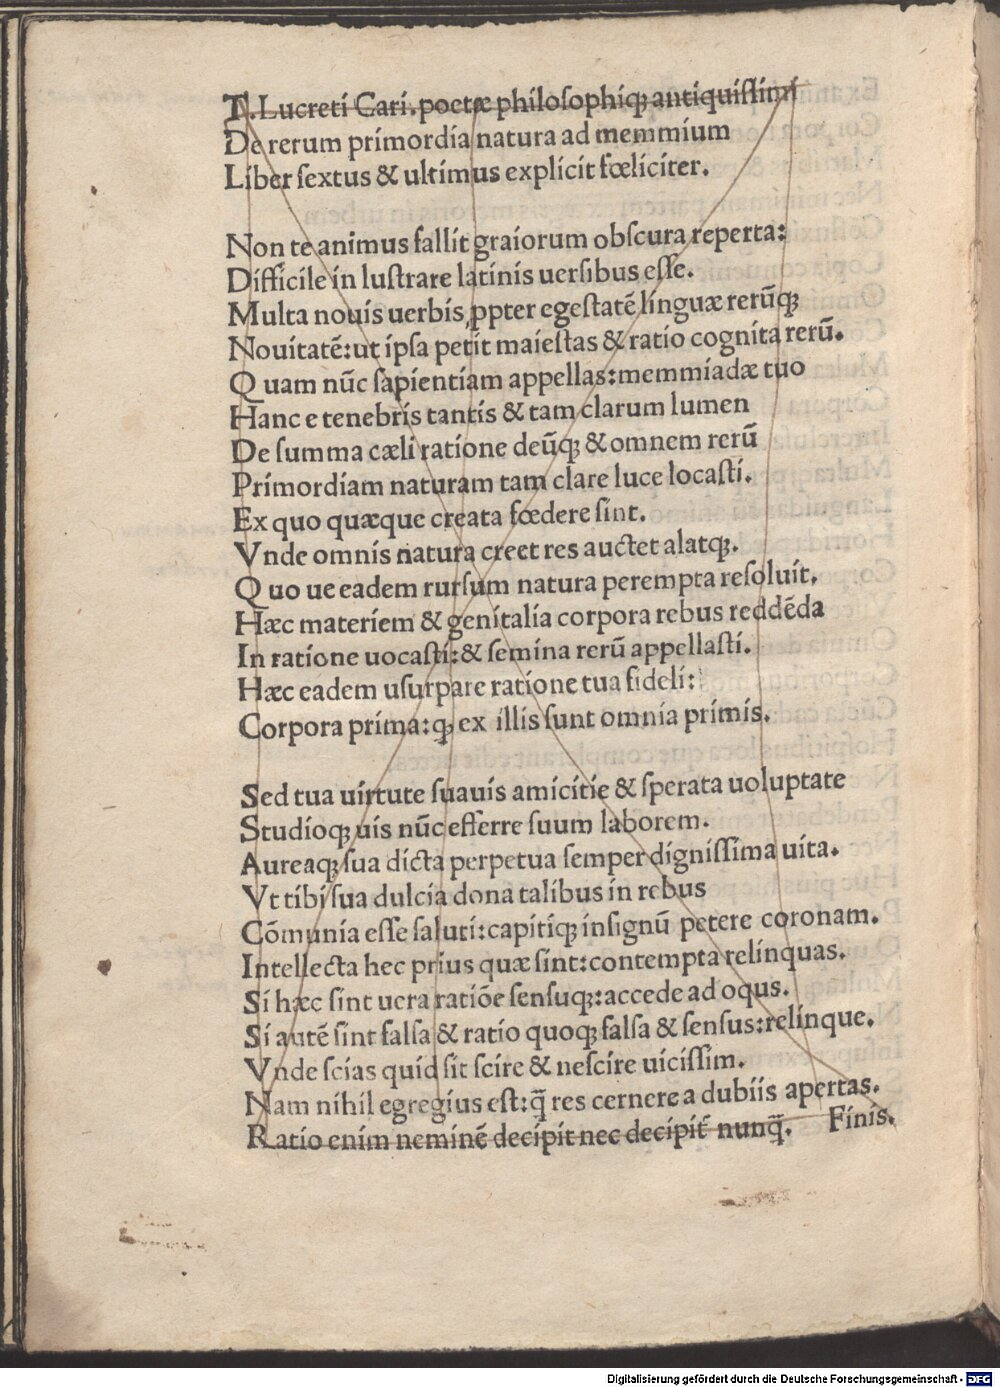 T. Lucreti Cari. poetæ philoſophiqꝫ antiquiſſimi
De rerum primordia natura ad memmium
Liber ſextus & ultimus explicit fœliciter.
Non te animus fallit graiorum obſcura reperta:
Difficile in luſtrare latinis uerſibus eſſe.
Multa nouis uerbis ꝓpter egeſtatē linguæ rerūqꝫ
Nouitatē: ut ipſa petit maieſtas & ratio cognita rerū.
Quam nūc ſapientiam appellas: memmiadæ tuo
Hanc e tenebris tantis & tam clarum lumen
De ſumma cæli ratione deūqꝫ & omnem rerū
Primordiam naturam tam clare luce locaſti.
Ex quo quæque creata fœdere ſint.
Vnde omnis natura creet res auctet alatqꝫ.
Quo ue eadem rurſum natura perempta reſoluit.
Hæc materiem & genitalia corpora rebus reddēda
In ratione uocaſti: & ſemina rerū appellaſti.
Hæc eadem uſurpare ratione tua fideli:
Corpora prima: qꝫ ex illis ſunt omnia primis.
Sed tua uirtute ſuauis amicitie & ſperata uoluptate
Studioqꝫ uis nūc efferre ſuum laborem.
Aureaqꝫ ſua dicta perpetua ſemper digniſſima uita.
Vt tibi ſua dulcia dona talibus in rebus
Cōmunia eſſe ſaluti: capitiqꝫ inſignū petere coronam.
Intellecta hec prius quæ ſint: contempta relinquas.
Si hæc ſint uera ratiōe ſenſuqꝫ: accede ad oqus.
Si autē ſint falſa & ratio quoqꝫ falſa & ſenſus: relinque.
Vnde ſcias quid ſit ſcire & neſcire uiciſſim.
Nam nihil egregius eſt: q̄ res cernere a dubiis apertas.
Ratio enim neminē decipit nec decipit̄ nunq̄. Finis.
Digitalisierung gefördert durch die Deutsche Forschungsgemeinschaft - DFG